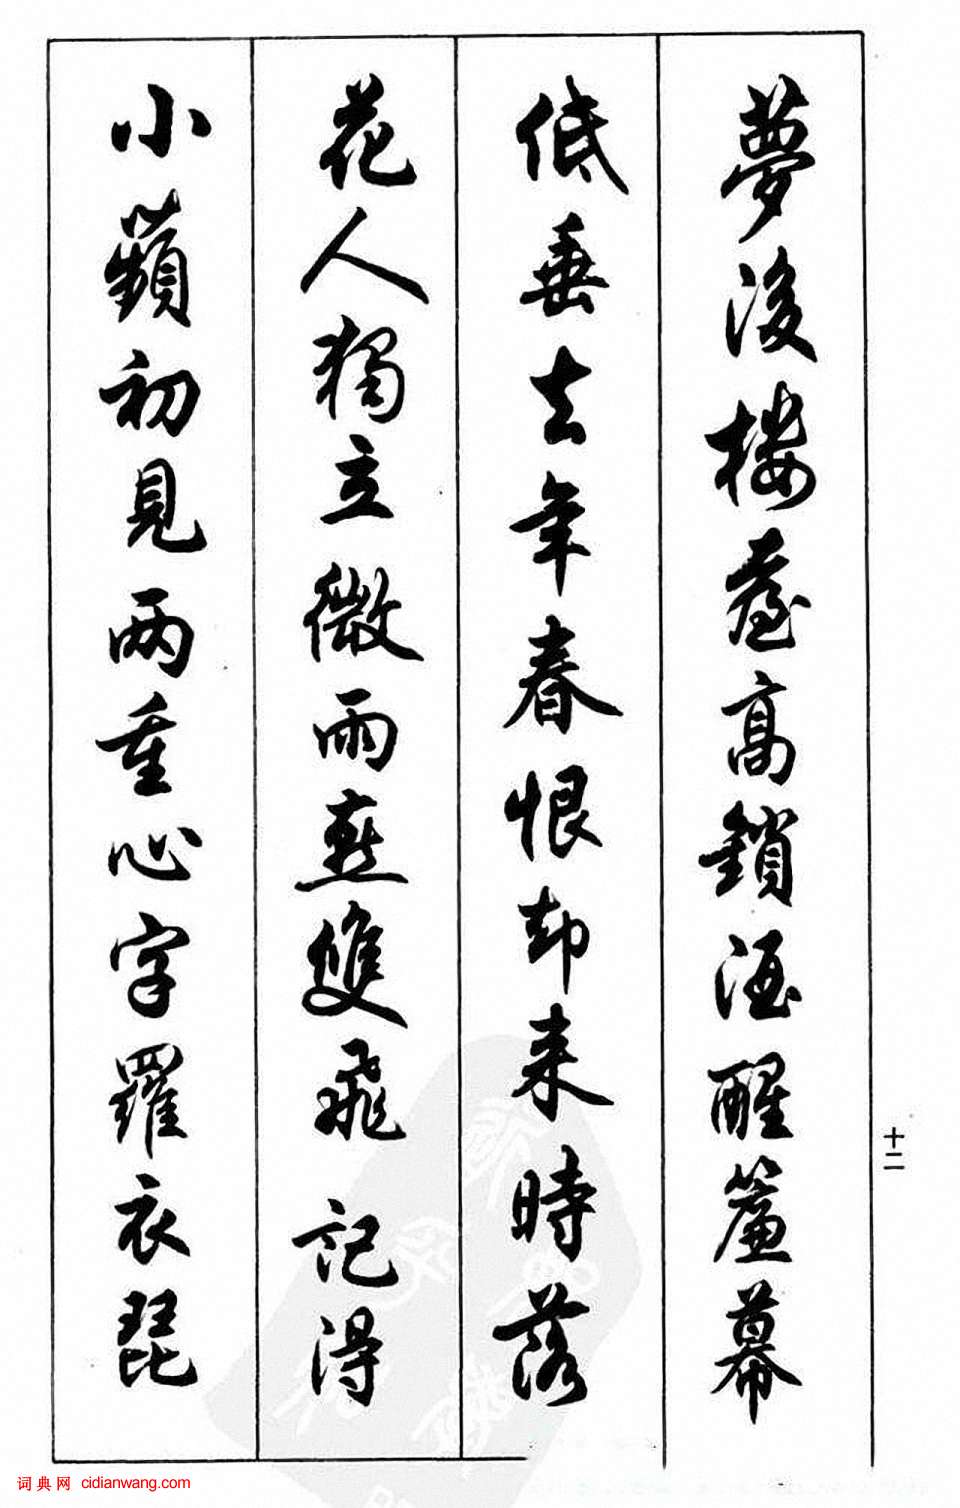 夢後樓臺高鎖酒醒簾幕
低垂去年春恨却来時落
花人獨立微雨燕雙飛記得
小蘋初見兩重心字羅衣琵
十二
词典网 cidianwang.com